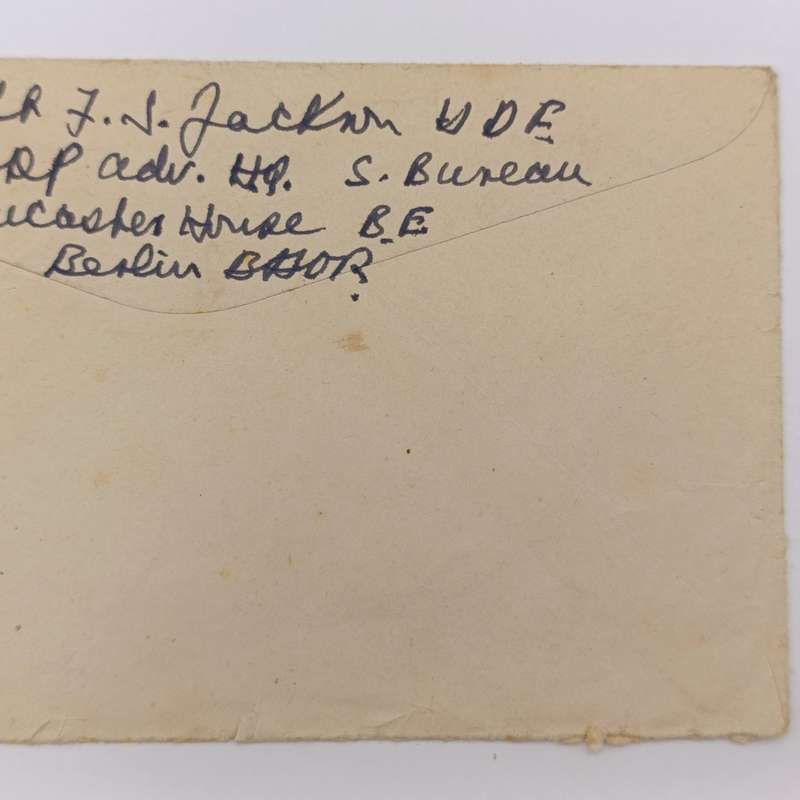 F. J. Jackson UDE
adv. HQ. S. Bureau
ncaster House B.E
Berlin BAOR.